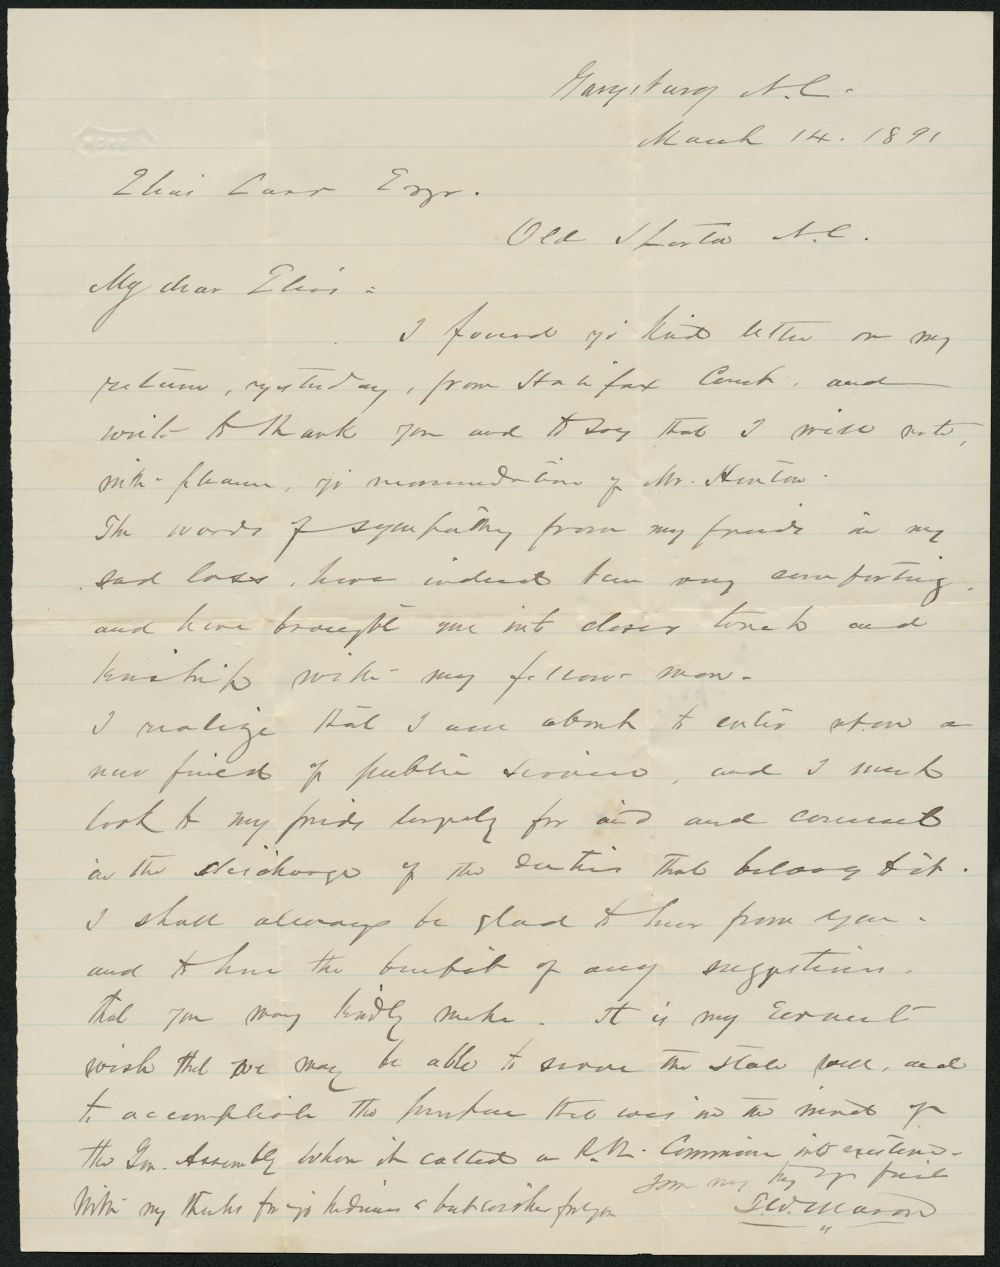 Garysburg N.C.
March 14. 1891
Elias Carr Esqr.
Old Sparta N.C.
My dear Elias:
I found yr kind letter on my
return, yesterday, from Halifax Court, and
write to thank you and to say that I will note,
with pleasure, yr recommendation of Mr. Hinton.
The words of sympathy from my friends in my
sad loss, have indeed been very comforting,
and have brought me into closer touch and
kinship with my fellow man.
I realize that I am about to enter upon a
new field of public service, and I must
look to my friends largely for aid and counsel
in the discharge of the duties that belong to it.
I shall always be glad to hear from you.
and to have the benefit of any suggestions.
that you may kindly make. It is my earnest
wish that we may be able to serve the State well, and
to accomplish the purpose that was in the mind of
the Gen. Assembly when it called a R.R. Commission into existence.
With my thanks for yr kindness & best wishes for you
I am very truly yr friend
T.W. Mason